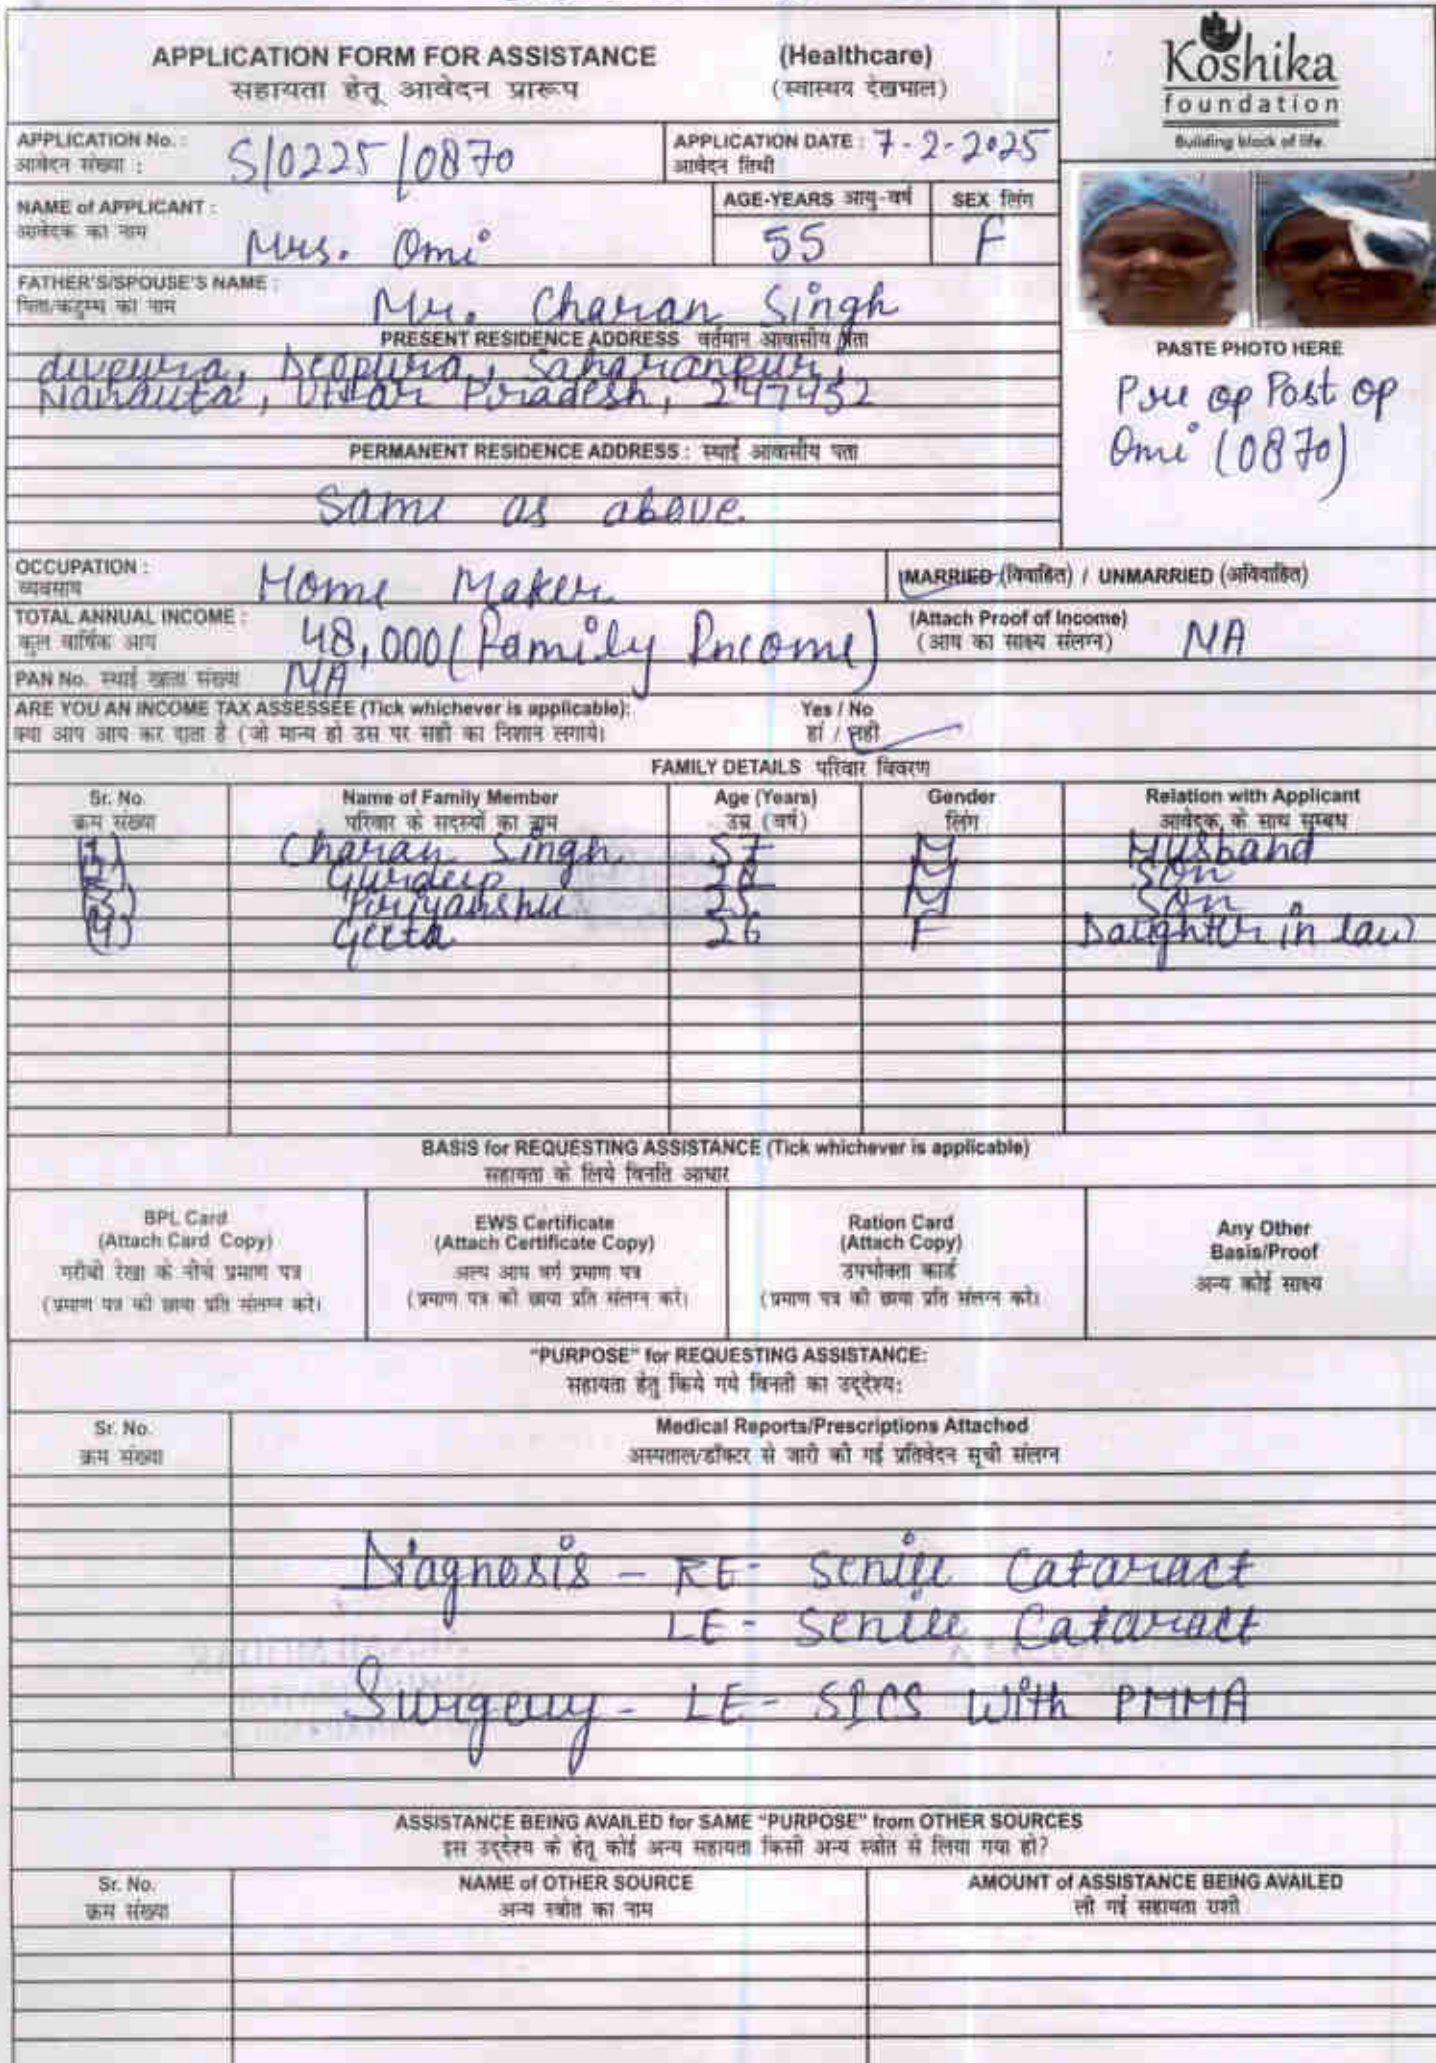 APPLICATION FORM FOR ASSISTANCE (Healthcare)
सहायता हेतू आवेदन प्रारूप (स्वास्थय देखभाल)
Koshika
foundation
Building block of life.
APPLICATION No. : S/0225/0870
आवेदन संख्या :
APPLICATION DATE : 7-2-2025
आवेदन तिथी
NAME of APPLICANT : Mrs. Omi
आवेदक का नाम
AGE-YEARS आयु-वर्ष 55
SEX लिंग F
FATHER'S/SPOUSE'S NAME : Mr. Charan Singh
पिता/कटुम्ब का नाम
PRESENT RESIDENCE ADDRESS वर्तमान आवासीय पता
Deopura, Saharanpur,
Nanauta, Uttar Pradesh, 247452
PASTE PHOTO HERE
Pre op Post op
Omi (0870)
PERMANENT RESIDENCE ADDRESS : स्थाई आवासीय पता
Same as above.
OCCUPATION : Home Maker
व्यवसाय
MARRIED (विवाहित) / UNMARRIED (अविवाहित)
TOTAL ANNUAL INCOME : 48,000 (Family Income)
कुल वार्षिक आय
(Attach Proof of Income) NA
(आय का साक्ष्य संलग्न)
PAN No. स्थाई खाता संख्या NA
ARE YOU AN INCOME TAX ASSESSEE (Tick whichever is applicable): Yes / No
क्या आप आय कर दाता है (जो मान्य हो उस पर सही का निशान लगाये। हां / नही
FAMILY DETAILS परिवार विवरण
Sr. No. Name of Family Member Age (Years) Gender Relation with Applicant
क्रम संख्या परिवार के सदस्यों का नाम उम्र (वर्ष) लिंग आवेदक के साथ सम्बध
1) Charan Singh 57 M Husband
2) Gurdeep M Son
3) Priyanshu 25 M Son
(4) Geeta 26 F Daughter in law
BASIS for REQUESTING ASSISTANCE (Tick whichever is applicable)
सहायता के लिये विनति आधार
BPL Card
(Attach Card Copy)
गरीबी रेखा के नीचे प्रमाण पत्र
(प्रमाण पत्र की छाया प्रति संलग्न करे।
EWS Certificate
(Attach Certificate Copy)
अल्प आय वर्ग प्रमाण पत्र
(प्रमाण पत्र की छाया प्रति संलग्न करे।
Ration Card
(Attach Copy)
उपभोक्ता कार्ड
(प्रमाण पत्र की छाया प्रति संलग्न करे।
Any Other
Basis/Proof
अन्य कोई साक्ष्य
"PURPOSE" for REQUESTING ASSISTANCE:
सहायता हेतु किये गये विनती का उद्देश्य:
Sr. No. Medical Reports/Prescriptions Attached
क्रम संख्या अस्पताल/डॉक्टर से जारी की गई प्रतिवेदन सूची संलग्न
Diagnosis - RE- Senile Cataract
LE- Senile Cataract
Surgery - LE- SICS with PMMA
ASSISTANCE BEING AVAILED for SAME "PURPOSE" from OTHER SOURCES
इस उद्देश्य के हेतू कोई अन्य सहायता किसी अन्य स्त्रोत से लिया गया हो?
Sr. No. NAME of OTHER SOURCE AMOUNT of ASSISTANCE BEING AVAILED
क्रम संख्या अन्य स्त्रोत का नाम ली गई सहायता राशी